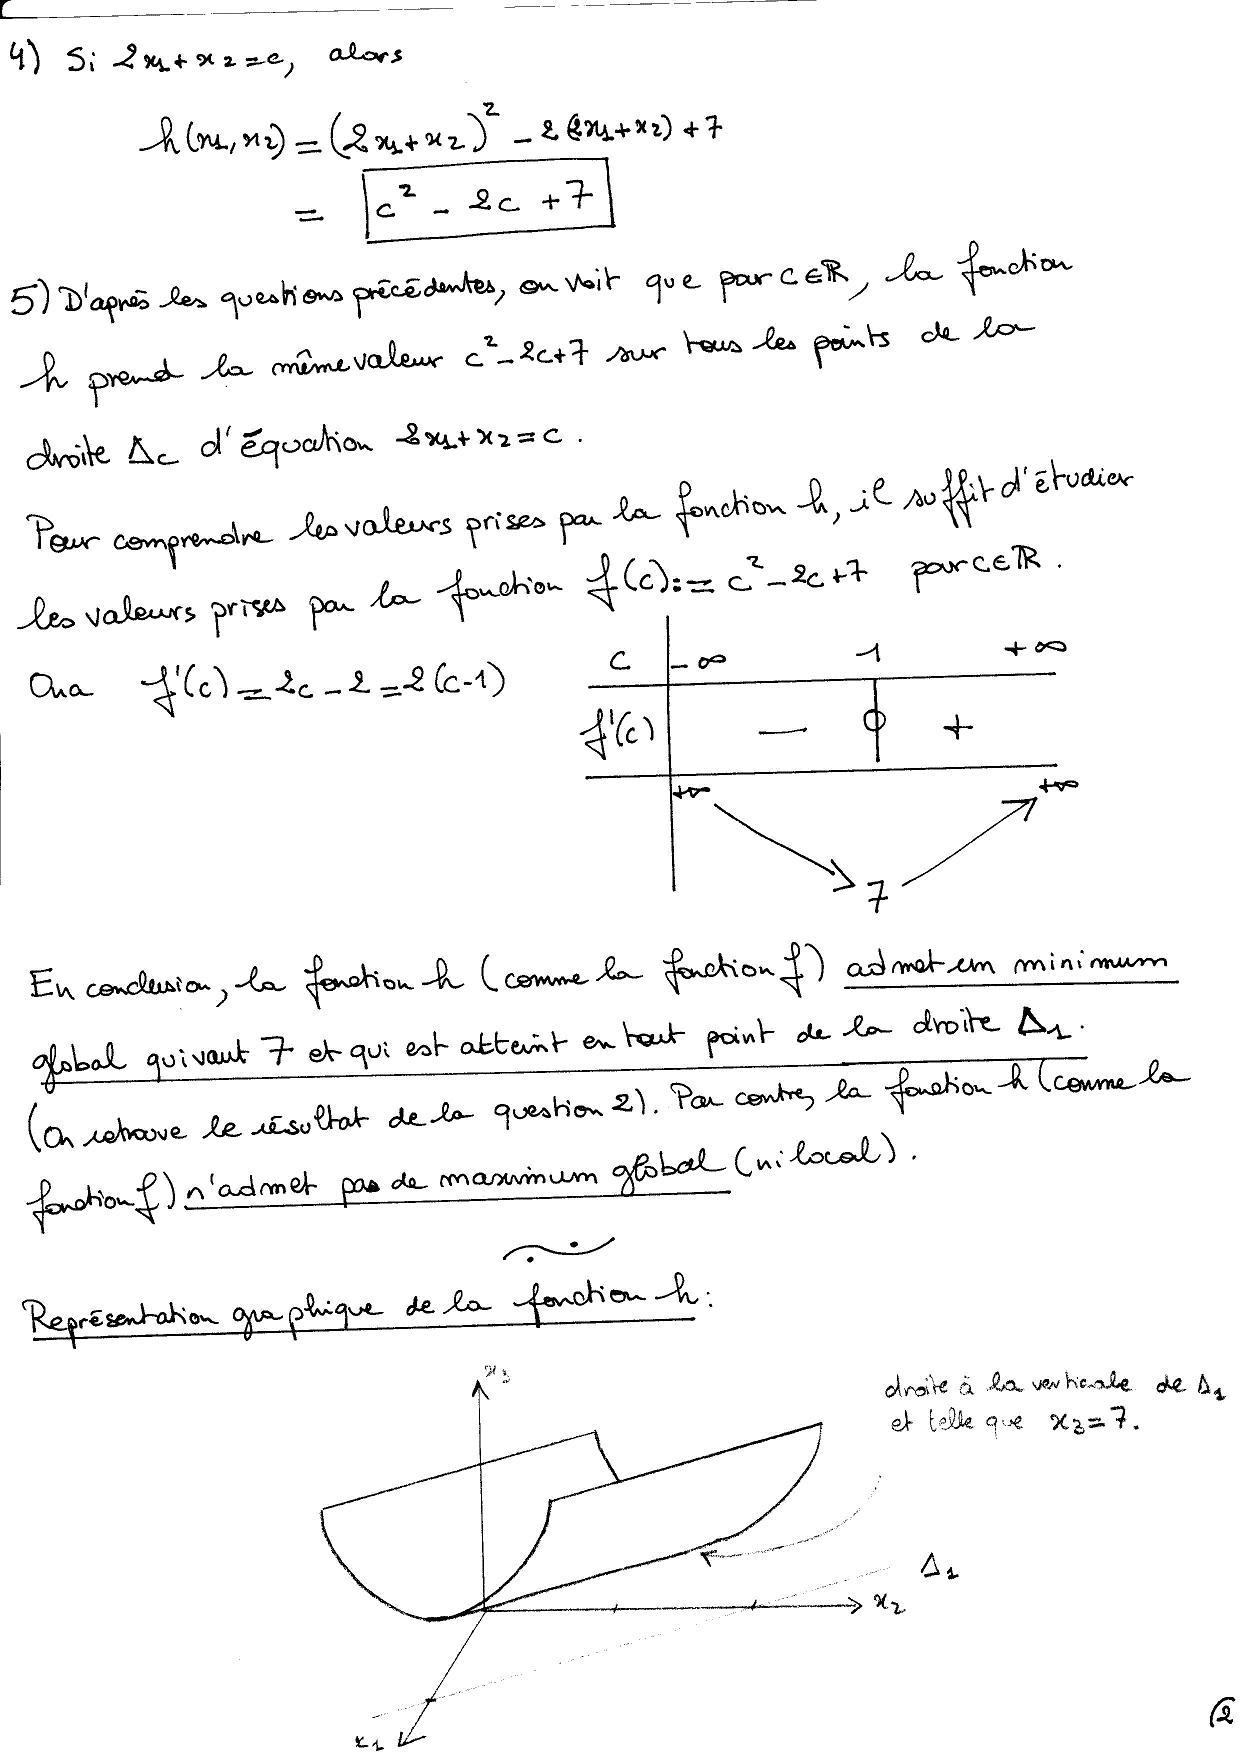 4) Si 2x₁+x₂=c, alors
h(x₁,x₂) = (2x₁+x₂)² - 2(2x₁+x₂)+7
= c² - 2c +7
5) D'après les questions précédentes, on voit que pour c∈ℝ, la fonction
h prend la même valeur c²-2c+7 sur tous les points de la
droite Δc d'équation 2x₁+x₂=c.
Pour comprendre les valeurs prises par la fonction h, il suffit d'étudier
les valeurs prises par la fonction f(c):= c²-2c+7 pour c∈ℝ.
On a f'(c)=2c-2=2(c-1)
c -∞ 1 +∞
f'(c) - 0 +
+∞ 7 +∞
En conclusion, la fonction h (comme la fonction f) admet un minimum
global qui vaut 7 et qui est atteint en tout point de la droite Δ₁.
(On retrouve le résultat de la question 2). Par contre, la fonction h (comme la
fonction f) n'admet pas de maximum global (ni local).
Représentation graphique de la fonction h:
x₃
droite à la verticale de Δ₁
et telle que x₃=7.
Δ₁
x₂
x₁
2